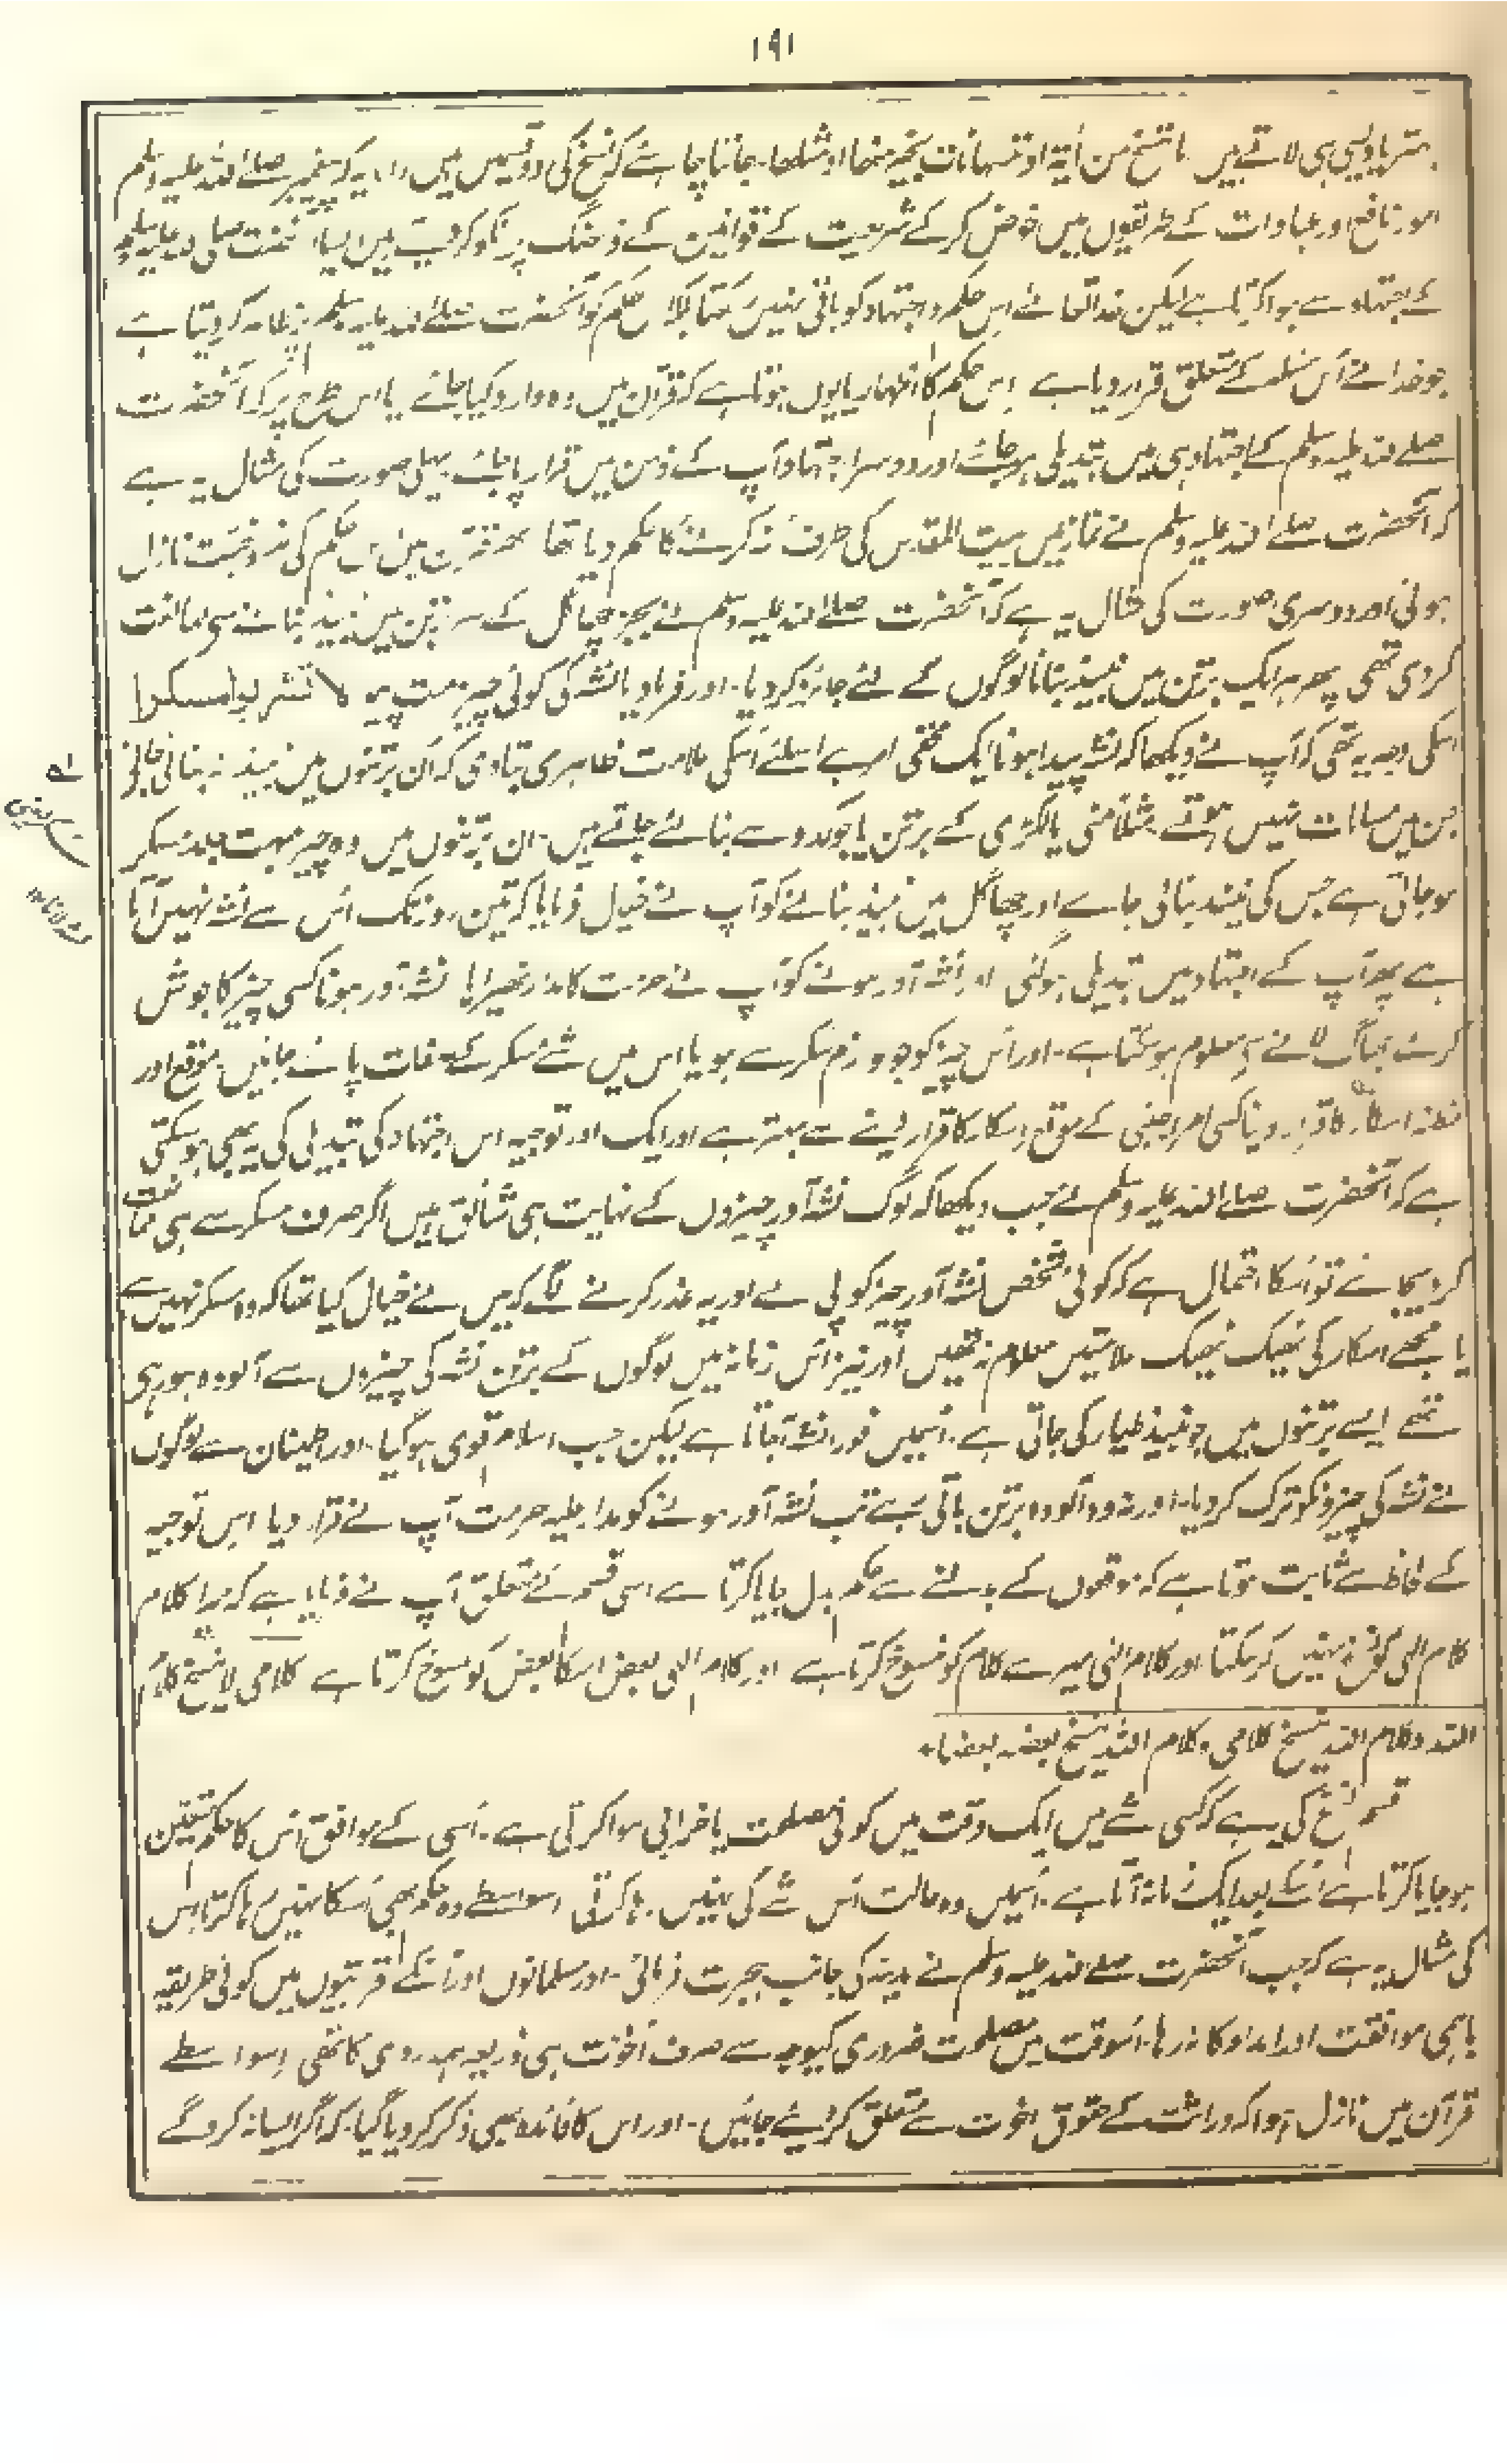 ۱۹۱
بہتر یا ویسی ہی لاتے ہیں ما ننسخ من اٰیة او ننسہا نات بخیر منہا او مثلہا۔ جاننا چاہئے کہ نسخ کی دو قسمیں ہیں (۱) یہ کہ پیغمبر صلے اللہ علیہ وسلم
امور نافع اور عبادات کے طریقوں میں خوض کر کے شریعت کے قوانین کے ڈھنگ پر انکو کر دیتے ہیں ایسا آنحضرت صلی اللہ علیہ وسلم
کے اجتہاد سے ہوا کرتا ہے لیکن خدا تعالے اس حکم و اجتہاد کو باقی نہیں رکھتا بلکہ اس حکم کو آنحضرت صلے اللہ علیہ وسلم پر ظاہر کر دیتا ہے
جو خدا نے اس مسئلہ کے متعلق قرار دیا ہے اس حکم کا اظہار یا یوں ہوتا ہے کہ قرآن میں وہ وارد کیا جائے یا اس طرح پر کہ آنحضرت
صلے اللہ علیہ وسلم کے اجتہاد ہی میں تبدیلی ہو جائے اور دوسرا اجتہاد آپ کے ذہن میں قرار پا جائے۔ پہلی صورت کی مثال یہ ہے
کہ آنحضرت صلے اللہ علیہ وسلم نے نماز میں بیت المقدس کی طرف رُخ کرنے کا حکم دیا تھا پھر قرآن میں اس حکم کی منسوخیت نازل
ہوئی اور دوسری صورت کی مثال یہ ہے کہ آنحضرت صلے اللہ علیہ وسلم نے بجز چھاگل کے ہر برتن میں نبیذ بنانے سے ممانعت
کر دی تھی پھر ہر ایک برتن میں نبیذ بنانا لوگوں کے لئے جائز کر دیا۔ اور فرما دیا نشہ کی کوئی چیز مت پیو لا تشربوا مسکرا
اسکی وجہ یہ تھی کہ آپ نے دیکھا کہ نشہ پیدا ہونا ایک مخفی امر ہے اسلئے اسکی علامت ظاہری بتا دی کہ ان برتنوں میں نبیذ نہ بنائی جائے
جن میں مسامات نہیں ہوتے مثلاً مٹی یا لکڑی کے برتن یا جو کدو سے بنائے جاتے ہیں۔ ان برتنوں میں وہ چیز بہت جلد مسکر
ہو جاتی ہے جس کی نبیذ بنائی جاے اور چھاگل میں نبیذ بنانے کو آپ نے خیال فرمایا کہ تین روز تک اس سے نشہ نہیں آتا
ہے پھر آپ کے اجتہاد میں تبدیلی ہو گئی اور نشہ آور ہونے کو آپ نے حرمت کا مدار ٹھیرایا نشہ آور ہونا کسی چیز کا جوش
کرنے جھاگ لانے سے معلوم ہو سکتا ہے۔ اور اس چیز کو جو لازم مسکر ہے ہو یا اس میں شے مسکر کے صفات پائے جائیں موقع اور
مظنہ اسکار کا قرار دینا کسی امر اجنبی کے موقع اسکار کا قرار دینے سے بہتر ہے اور ایک اور توجیہ اس اجتہاد کی تبدیلی کی یہ بھی ہو سکتی
ہے کہ آنحضرت صلے اللہ علیہ وسلم نے جب دیکھا کہ لوگ نشہ آور چیزوں کے نہایت ہی شائق ہیں اگر صرف مسکر سے ہی ممانعت
کر دیجائے تو اسکا احتمال ہے کہ کوئی شخص نشہ آور چیز کو پی لے اور یہ عذر کرنے لگے کہ میں نے خیال کیا تھا کہ وہ مسکر نہیں ہے
یا مجھے اسکار کی ٹھیک ٹھیک علامتیں معلوم نہ تھیں اور نیز اس زمانہ میں لوگوں کے برتن نشہ کی چیزوں سے آلودہ ہو رہی
تھے ایسے برتنوں میں جو نبیذ طیار کی جاتی ہے۔ اسمیں فوراً نشہ آجاتا ہے لیکن جب اسلام قوی ہو گیا۔ اور اطمینان سے لوگوں
نے نشہ کی چیزونکو ترک کر دیا۔ اور نہ وہ آلودہ برتن باقی رہے تب نشہ آور ہونے کو مدار علیہ حرمت آپ نے قرار دیا اس توجیہ
کے لحاظ سے ثابت ہوتا ہے کہ موقعوں کے بدلنے سے حکم بدل جایا کرتا ہے اسی قسم کے متعلق آپ نے فرمایا ہے کہ میرا کلام
کلام الہی کو منسوخ نہیں کر سکتا اور کلام الٰہی میرے کلام کو منسوخ کرتا ہے اور کلام الٰہی بعض اسکا بعض کو منسوخ کرتا ہے کلامی لا ینسخ کلام
اللہ وکلام اللہ ینسخ کلامی وکلام اللہ ینسخ بعضہ بعضا۔
قسم نسخ کی یہ ہے کہ کسی شے میں ایک وقت میں کوئی مصلحت یا خرابی ہوا کرتی ہے۔ اسی کے موافق اس کا حکم متعین
ہو جایا کرتا ہے اسکے بعد ایک زمانہ آتا ہے۔ اسمیں وہ حالت اس شے کی نہیں رہا کرتی اسواسطے وہ حکم بھی اسکا نہیں رہا کرتا اس
کی مثال یہ ہے کہ جب آنحضرت صلے اللہ علیہ وسلم نے مدینہ کی جانب ہجرت فرمائی۔ اور مسلمانوں اور انکے اقربیوں میں کوئی طریقہ
باہمی موافقت اور امداد کا نہ رہا۔ اسوقت میں مصلحت ضروری کیوجہ سے صرف اخوت ہی ذریعہ ہمدردی کا تھی اسواسطے
قرآن میں نازل ہوا کہ وراثت کے حقوق اخوت سے متعلق کر دیے جائیں۔ اور اس کا فائدہ بھی ذکر کر دیا گیا۔ کہ اگر ایسا نہ کرو گے